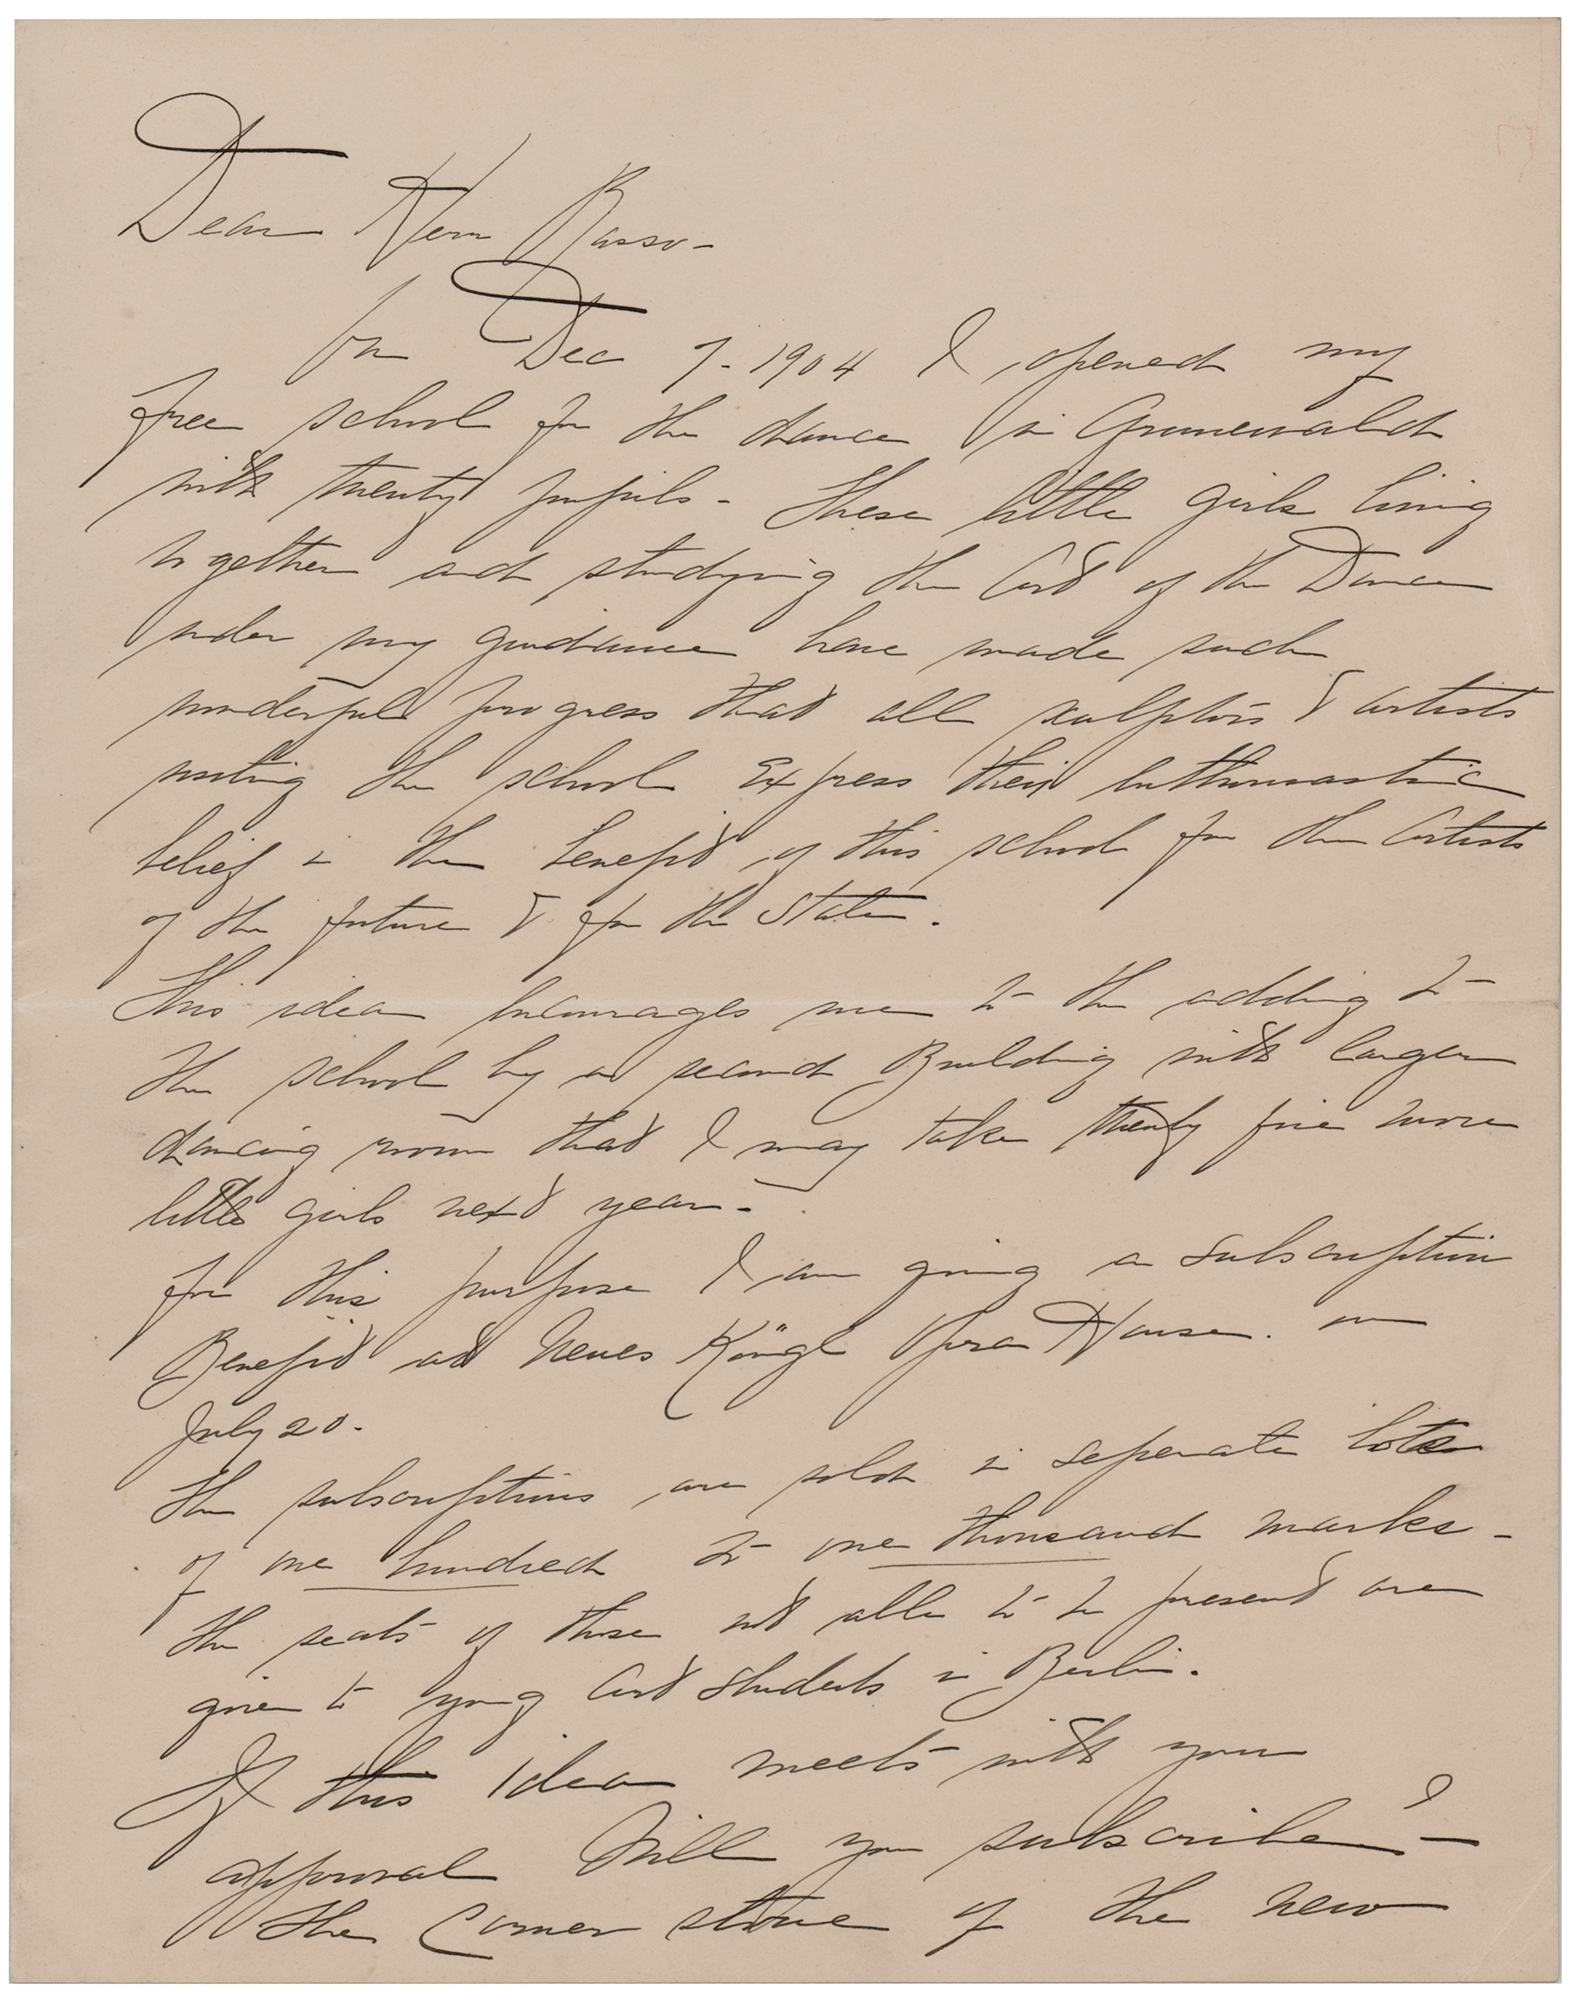 Dear Herr Rasso-
On Dec 7-1904 I opened my
free school for the dance in Grunewald
with twenty pupils - These little girls living
together and studying the Art of the Dance
under my guidance have made such
wonderful progress that all sculptors & artists
visiting the school Express their Enthusiastic
belief in the benefit of this school for the Artists
of the future & for the State.
This idea Encourages me to the adding to
the school by a second Building with larger
dancing room that I may take twenty five more
little girls next year-
for this purpose I am giving a subscription
Benefit at Neues Königl Opera House. on
July 20-
The subscriptions are sold in seperate lots
of one hundred to one thousand marks-
The seats of those not able to be present are
given to young Art Students in Berlin.
If this idea meets with your
approval Will you subscribe? -
The Corner stone of the new